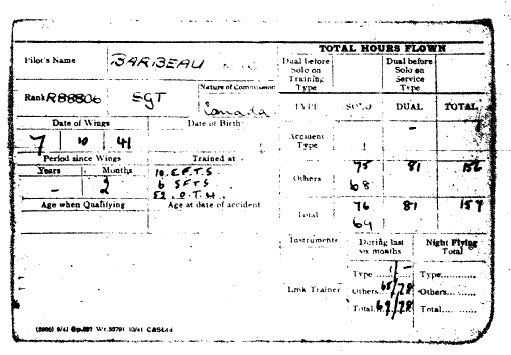 TOTAL HOURS FLOWN
Pilot's Name BARBEAU
Dual before Solo on Training Type
Dual before Solo on Service Type
Rank R88806 SGT
Nature of Commission
Canada
TYPE SOLO DUAL TOTAL
Date of Wings
Date of Birth
7 10 41
Accident Type 1 -
Period since Wings
Trained at
Years Months
- 2
10 E.F.T.S
6 S.F.T.S
52 O.T.U.
Others 75 81 156
68
Age when Qualifying
Age at date of accident
Total 76 81 157
69
Instruments
During last six months
Night Flying Total
Link Trainer
Type 1/- Type
Others 68/78 Others
Total 69/78 Total